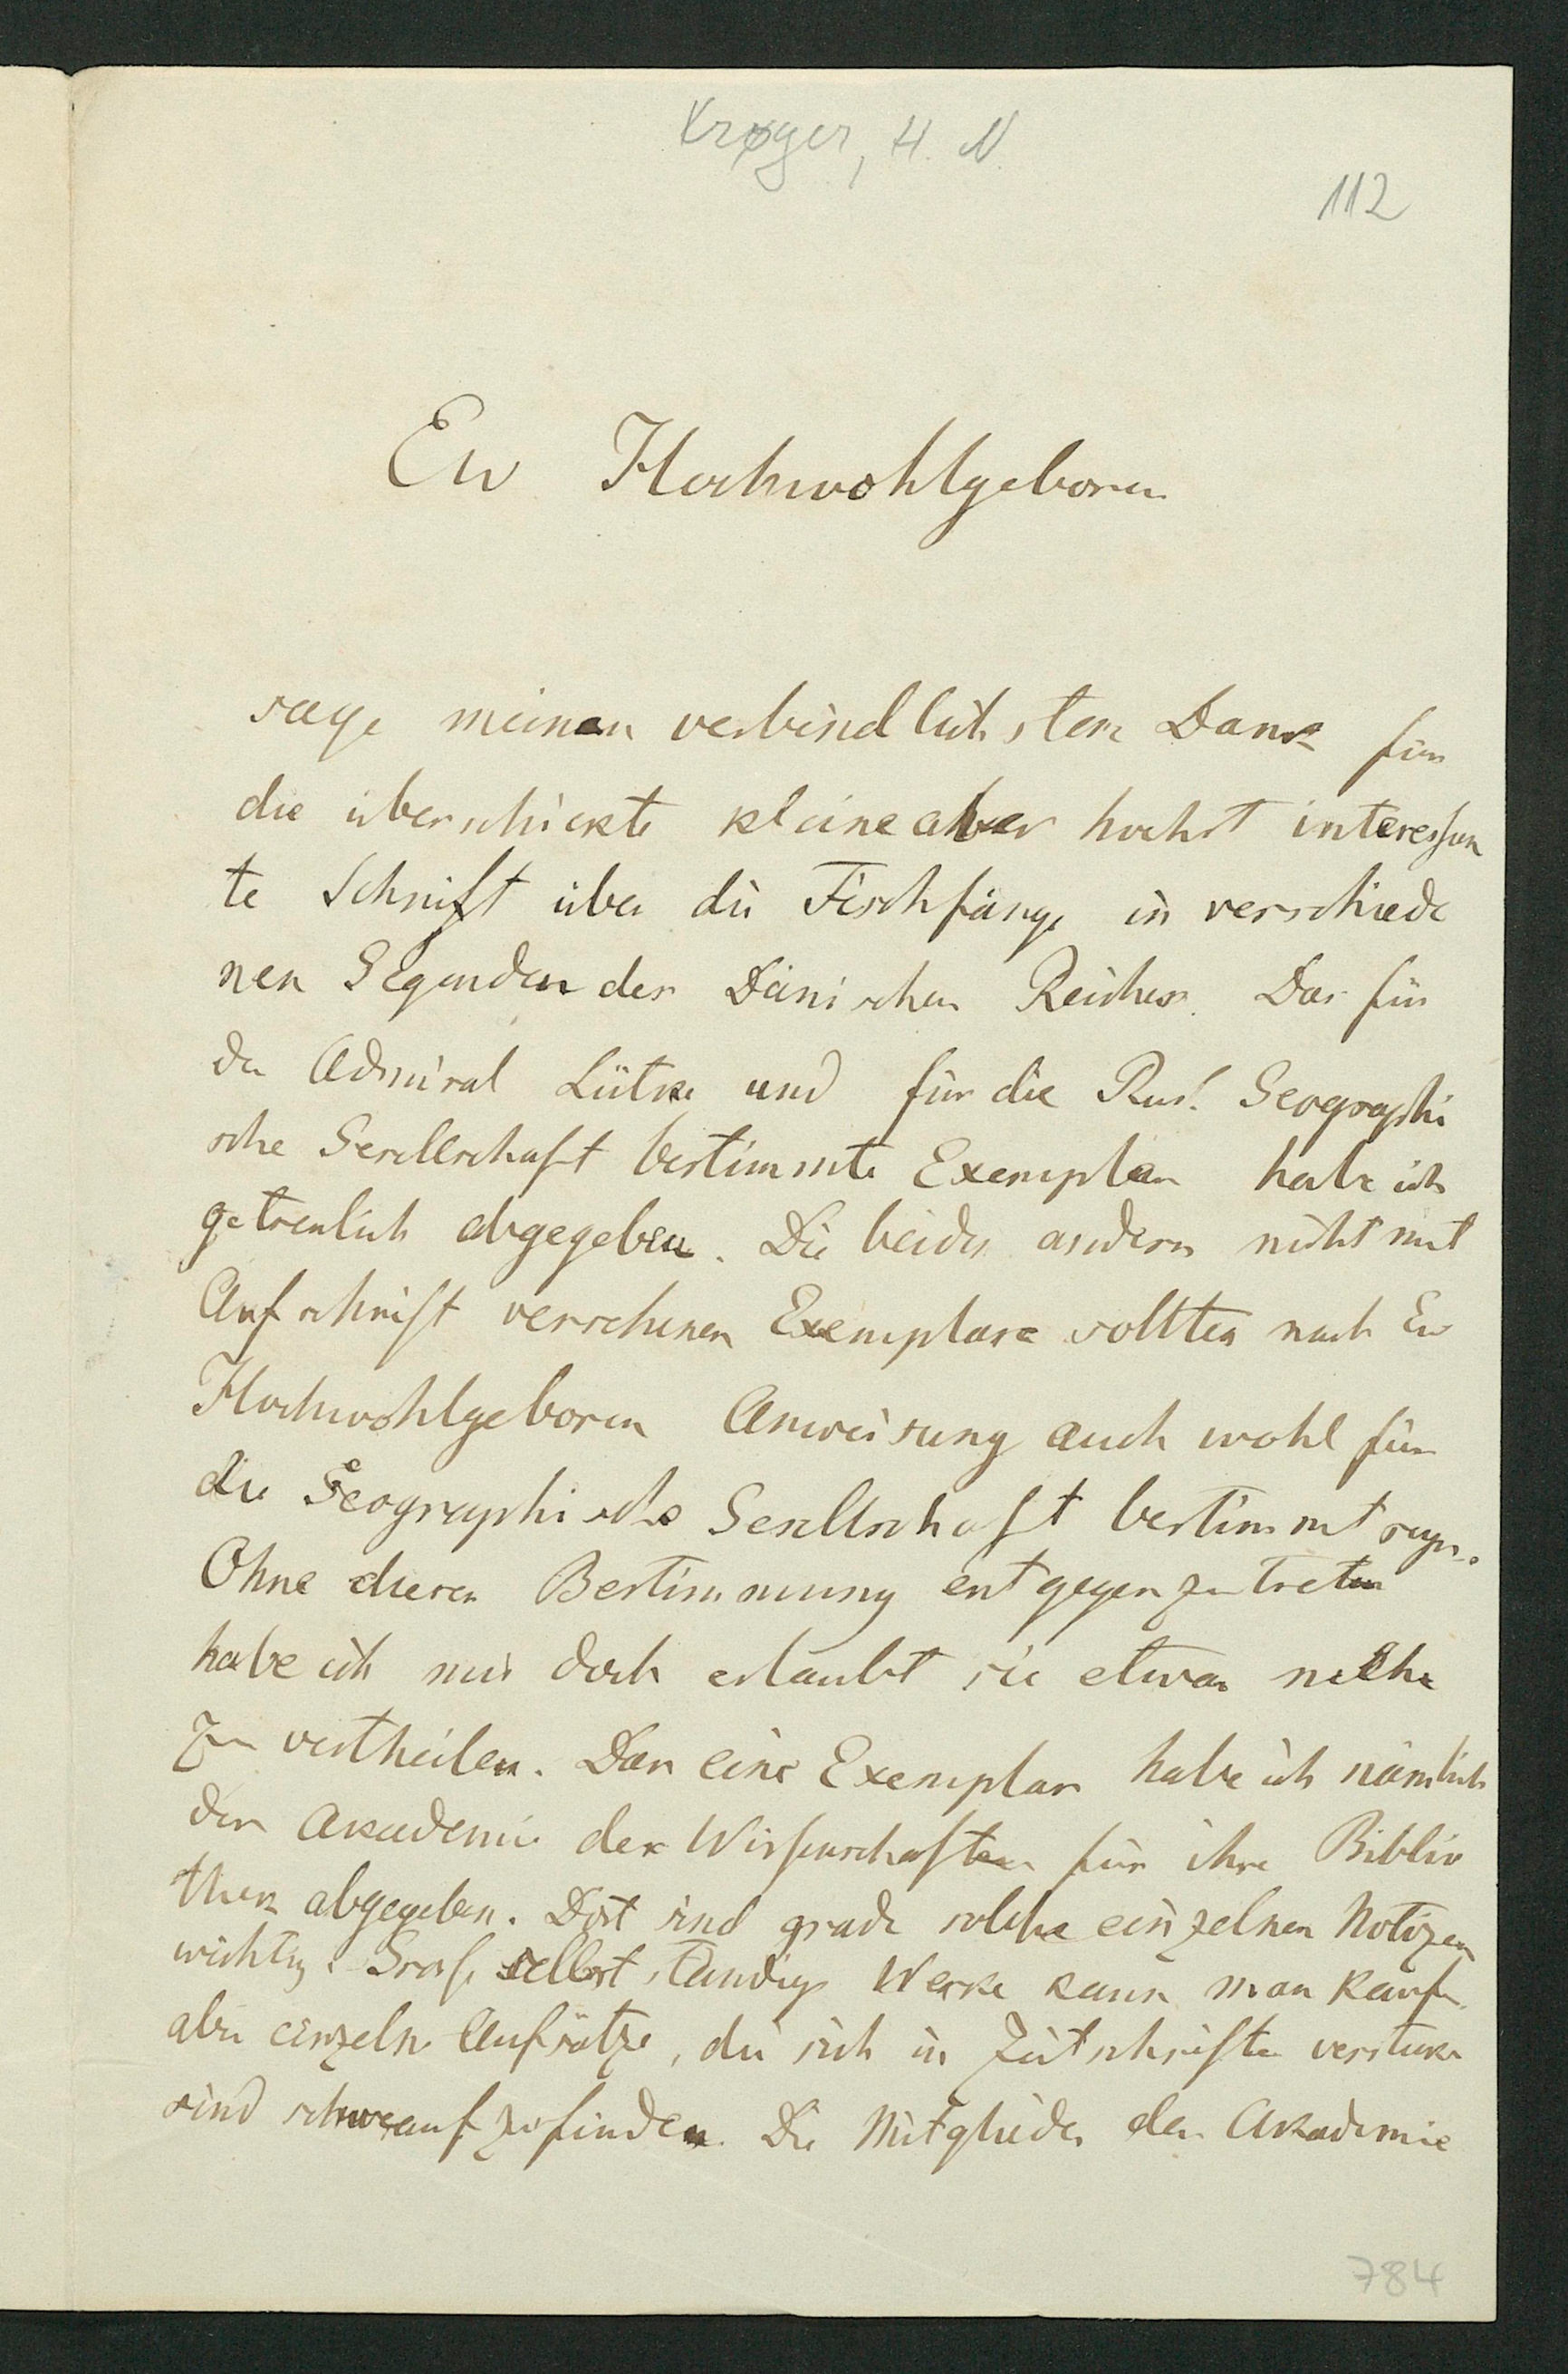 Krøger, H. N.
112
Ew Hochwohlgeboren
sage meinen verbindlichsten Dank für
die überschickte kleine aber höchst interessan
te Schrift über die Fischfänge in verschiede
nen Gegenden des Dänischen Reiches. Das für
den Admiral Lütke und für die Russ. Geographi
sche Gesellschaft bestimmte Exemplar habe ich
getreulich abgegeben. Die beiden andern nicht mit
Aufschrift versehenen Exemplare sollten nach Ew
Hochwohlgeboren Anweisung auch wohl für
die Geographische Gesellschaft bestimmt seyn.
Ohne dieser Bestimmung entgegen zu treten
habe ich mir doch erlaubt sie etwas mehr
zu vertheilen. Das eine Exemplar habe ich nämlich
der Akademie der Wissenschaften für ihre Biblio
thek abgegeben. Dort sind grade solche einzelnen Notizen
wichtig. Große selbstständige Werke kann man kaufen
aber einzelne Aufsätze, die sich in Zeitschriften verstecken
sind schwer aufzufinden. Die Mitglieder der Akademie
784